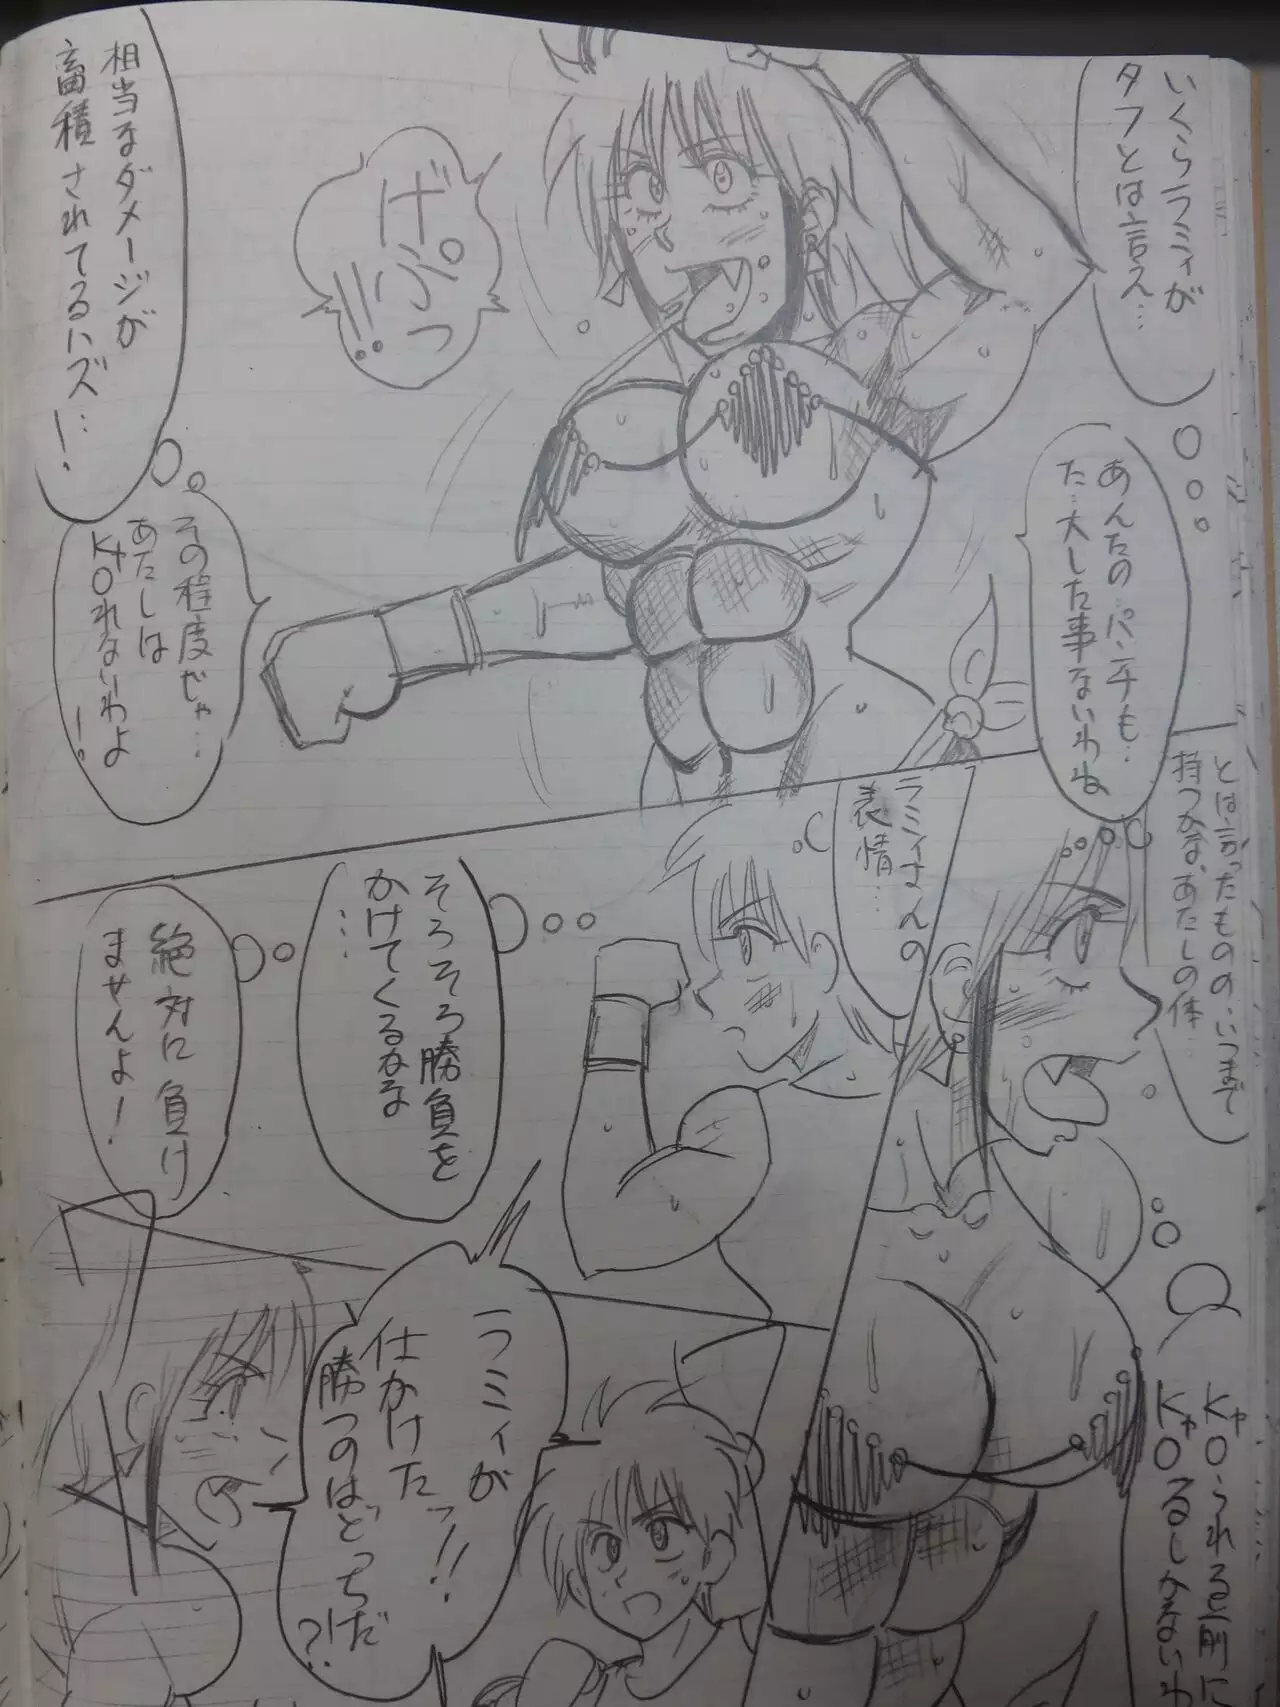 いくらラミィが
タフとは言え…
げぷっ!!
相当なダメージが
畜積されてるハズ…!
あんたのパンチも…
た…大した事ないわね
その程度じゃ…
あたしは
KOれないわよ
ヤ
!
とは言ったものの、いつまで
持つかな、あたしの体…
KOられる前に
ヤ
KOるしかないわ
ヤ
ラミィさんの
表情…
そろそろ勝負を
かけてくるかな
…
絶対に負け
ませんよ!
ラミィが
仕かけたッ!!
勝つのはどっちだ
?!